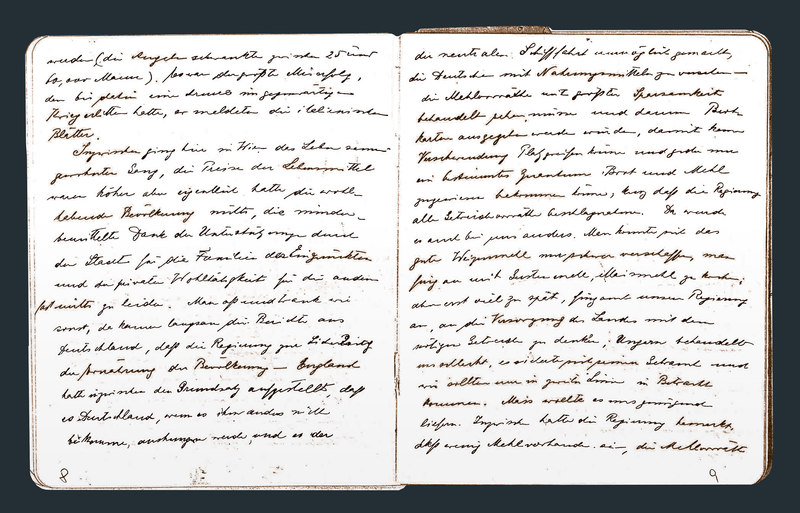 wurden (die Angaben schwankten zwischen 25 und
60,000 Mann). Es war der größte Misserfolg,
den bis dahin eine Armee im gegenwärtigen
Krieg erlitten hatte, so meldeten die italienischen
Blätter.
Inzwischen ging hier in Wien das Leben seinen
gewohnten Gang, die Preise der Lebensmittel
waren höher aber eigentlich hatte die wohl-
habende Bevölkerung nichts, die minder-
bemittelte Dank der Unterstützungen durch
den Staat für die Familien der Eingerückten
und der privaten Wohltätigkeit für die andern
fast nichts zu leiden. Man aß und trank wie
sonst, da kamen langsam die Berichte aus
Deutschland, daß die Regierung zur
der Ernährung der Bevölkerung – England
hatte inzwischen den Grundsatz aufgestellt daß
es Deutschland, wenn es ihm anders nicht
beikomme, aushungern werde, und es der
8
der neutralen Schifffahrt unmöglich gemacht,
die Deutschen mit Nahrungsmitteln zu versehen –
die Mehlvorräthe mit größter Sparsamkeit
behandelt sehen müsse und darum Brot-
karten ausgegeben werden würden, damit keine
Verschwendung Platz greifen könne und jeder nur
ein bestimmtes Quantum Brot und Mehl
zugewiesen bekommen könne, kurz daß die Regierung
alle Getreidevorräthe beschlagnehme. Da wurde
es auch bei uns anders. Man konnte sich das
gute Weizenmehl nur schwer verschaffen, man
fing an mit Gerstenmehl, Maismehl zu kochen;
aber erst viel zu spät, fing auch unsere Regierung
an, an die Versorgung des Landes mit dem
nötigen Getreide zu denken; Ungarn behandelte
uns schlecht, es sicherte sich seinen Getreide und
wir sollten nur in zweiter Linie in Betracht
kommen. Mais wollte es uns genügend
liefern. Inzwischen hatte die Regierung bemerkt,
daß wenig Mehl vorhanden sei, die Mehlvorräthe
9